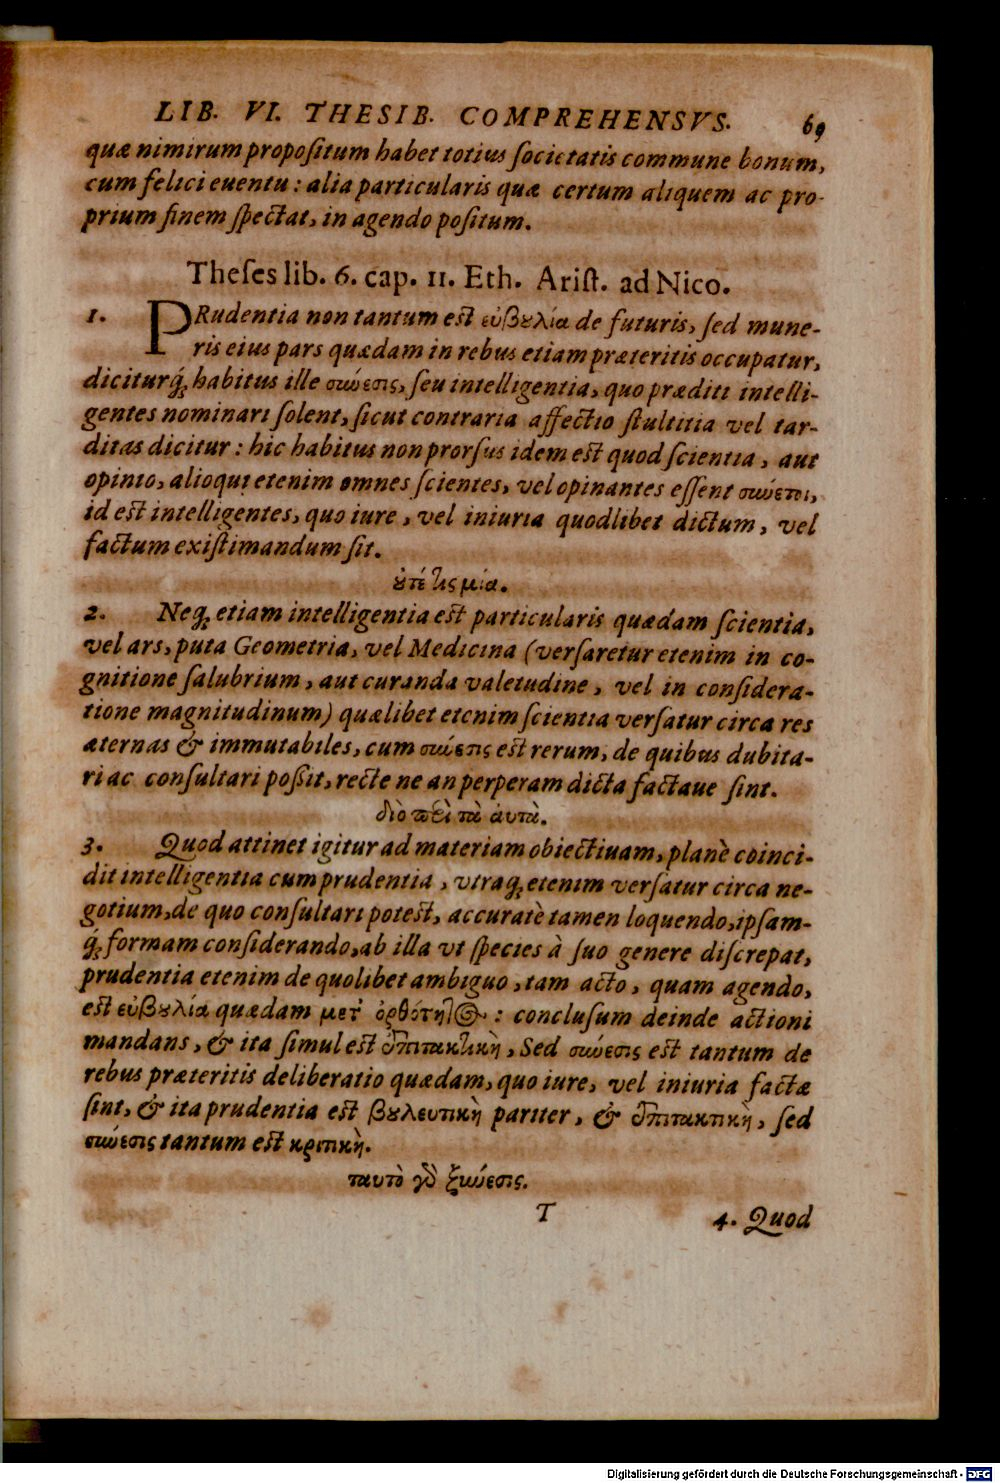 LIB. VI. THESIB. COMPREHENSVS. 69
quæ nimirum propoſitum habet totius ſocietatis commune bonum,
cum felici euentu: alia particularis quæ certum aliquem ac pro-
prium finem ſpectat, in agendo poſitum.
Theſes lib. 6. cap. 11. Eth. Ariſt. ad Nico.
1. PRudentia non tantum eſt εὐβȣλία de futuris, ſed mune-
ris eius pars quædam in rebus etiam præteritis occupatur,
diciturq́ꝫ habitus ille σύνεσις, ſeu intelligentia, quo præditi intelli-
gentes nominari ſolent, ſicut contraria affectio ſtultitia vel tar-
ditas dicitur: hic habitus non prorſus idem eſt quod ſcientia, aut
opinio, alioqui etenim omnes ſcientes, vel opinantes eſſent συνετοι,
id eſt intelligentes, quo iure, vel iniuria quodlibet dictum, vel
factum exiſtimandum ſit.
ȣτέ τις μία.
2. Neqꝫ etiam intelligentia eſt particularis quædam ſcientia,
vel ars, puta Geometria, vel Medicina (verſaretur etenim in co-
gnitione ſalubrium, aut curanda valetudine, vel in conſidera-
tione magnitudinum) quælibet etenim ſcientia verſatur circa res
æternas & immutabiles, cum σύνεσις eſt rerum, de quibus dubita-
ri ac conſultari poſſit, recte ne an perperam dicta factaue ſint.
διὸ περὶ τὰ ἀυτὰ.
3. Quod attinet igitur ad materiam obiectiuam, planè coinci-
dit intelligentia cum prudentia, vtraqꝫ etenim verſatur circa ne-
gotium, de quo conſultari poteſt, accuratè tamen loquendo, ipſam-
q́ꝫ formam conſiderando, ab illa vt ſpecies à ſuo genere diſcrepat,
prudentia etenim de quolibet ambiguo, tam acto, quam agendo,
eſt εὐβȣλία quædam μετ' ὀρθότητος: concluſum deinde actioni
mandans, & ita ſimul eſt ἐπιτακτικὴ, Sed σύνεσις eſt tantum de
rebus præteritis deliberatio quædam, quo iure, vel iniuria factæ
ſint, & ita prudentia eſt βȣλευτικὴ pariter, & ἐπιτακτικὴ, ſed
σύνεσις tantum eſt κριτικὴ.
ταυτὸ γὰρ ξύνεσις.
T 4. Quod
Digitalisierung gefördert durch die Deutsche Forschungsgemeinschaft - DFG